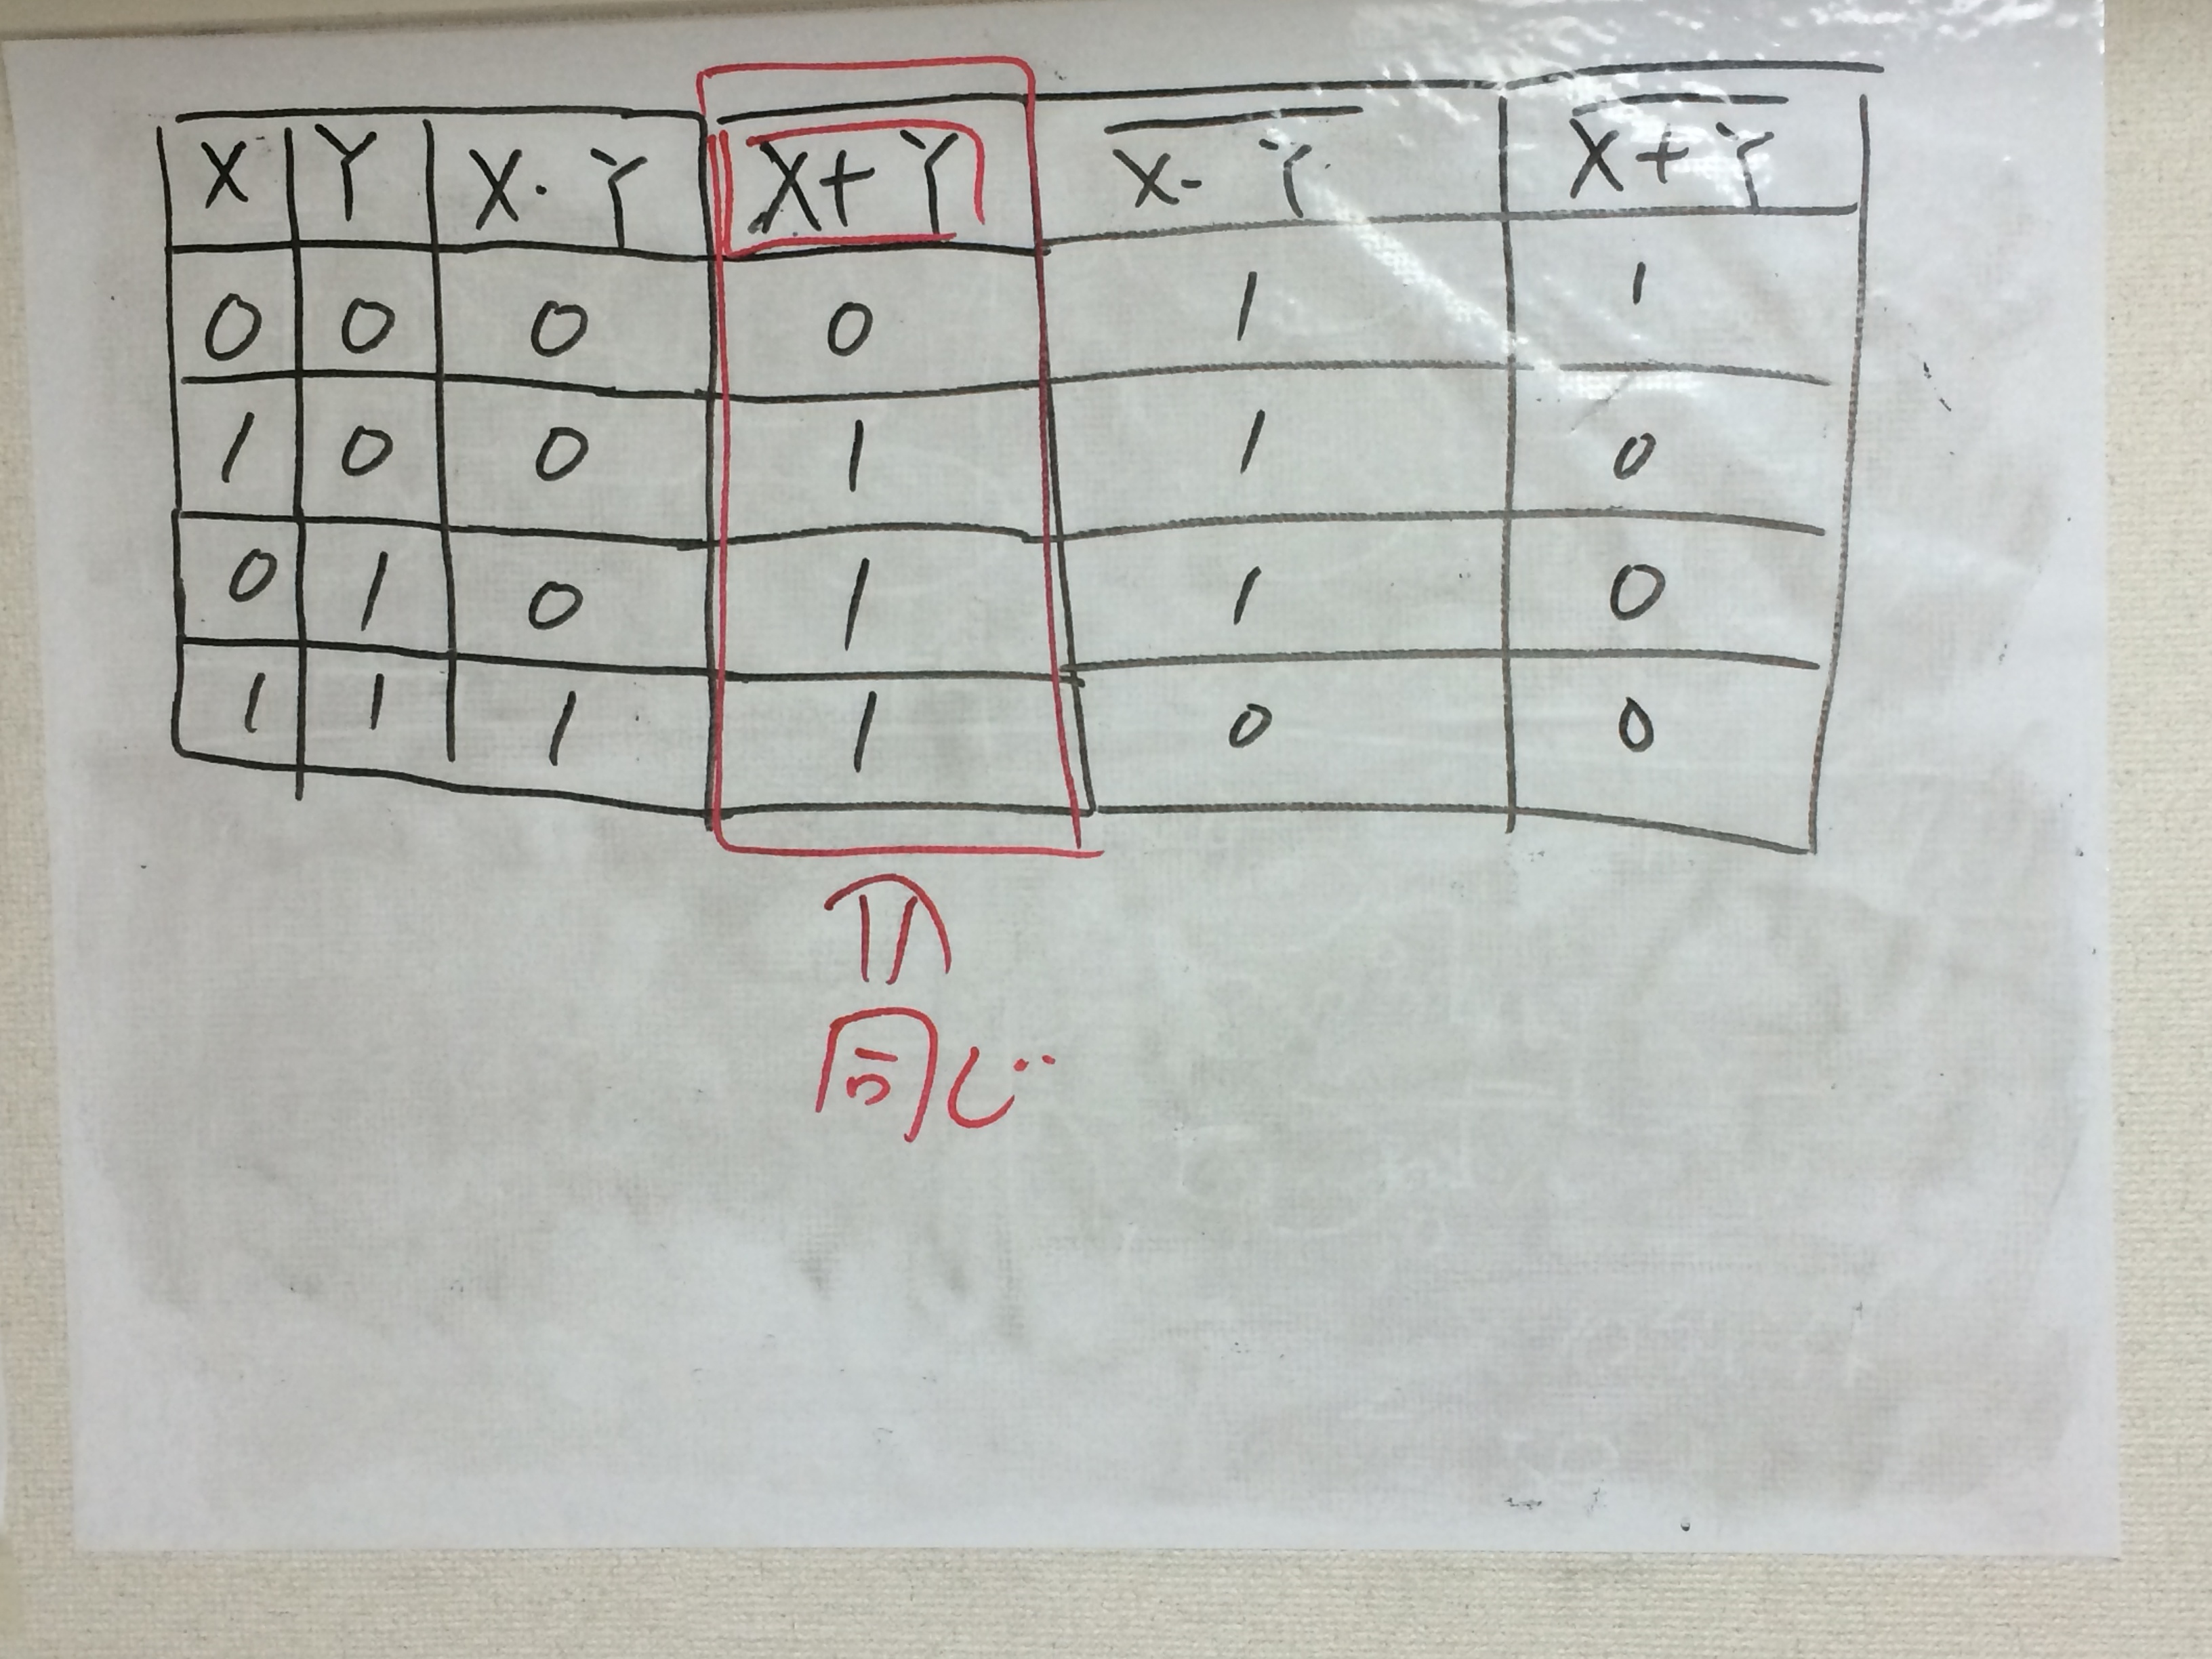 X Y X・Y X+Y X̅・̅Y̅ X̅+̅Y̅
0 0 0 0 1 1
1 0 0 1 1 0
0 1 0 1 1 0
1 1 1 1 0 0
⇑
同じ